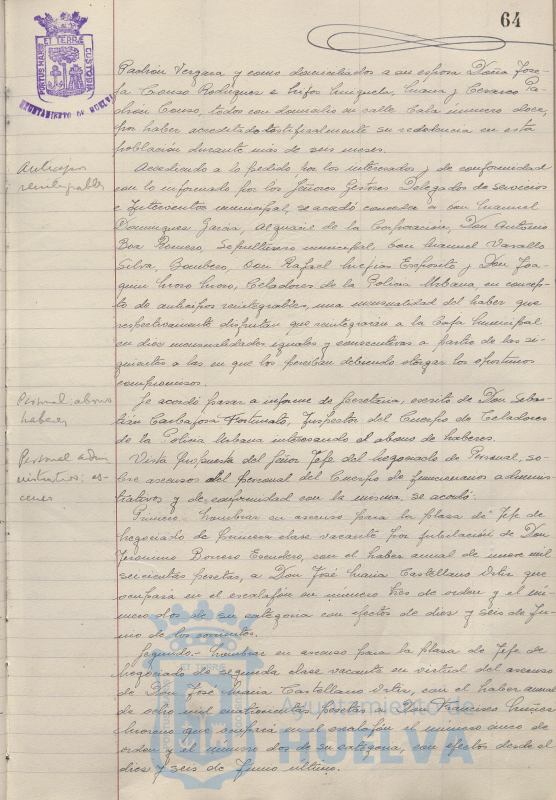 64
Padrón Vergara y como domiciliados a su esposa Doña Jose-
fa Couso Rodríguez e hijos Miguela, Juana y Cesareo Pa-
drón Couso, todos con domicilio en calle Cala número doce,
por haber acreditado testificalmente su residencia en esta
población durante más de seis meses.
Anticipos
reintegrables
Accediendo a lo pedido por los interesados y de conformidad
con lo informado por los Señores Gestores Delegados de servicios
e Interventor municipal, se acordó conceder a Don Manuel
Domínguez García, Alguacil de la Corporación, Don Antonio
Boa Romero, Sepulturero municipal, Don Manuel Vasallo
Silva, Bombero, Don Rafael Mejías Expósito y Don Joa-
quín Moro Moro, Celadores de la Policía Urbana, en concep-
to de anticipos reintegrables, una mensualidad del haber que
respectivamente disfrutan que reintegrarán a la Caja Municipal
en diez mensualidades iguales y consecutivas a partir de las si-
guientes a las en que los perciban debiendo otorgar los oportunos
compromisos.
Personal: abono
haberes
Se acordó pasar a informe de Secretaría, escrito de Don Sebas-
tián Carbajosa Fortunato, Inspector del Cuerpo de Celadores
de la Policía Urbana interesando el abono de haberes.
Personal admi
nistrativo; as-
censos
Vista propuesta del Señor Jefe del Negociado de Personal, so-
bre ascensos del personal del Cuerpo de funcionarios adminis-
trativos y de conformidad con la misma, se acordó:
Primero.- Nombrar en ascenso para la plaza de Jefe de
Negociado de primera clase vacante por jubilación de Don
Jeronimo Borrero Escudero, con el haber anual de nueve mil
seiscientas pesetas, a Don José María Castellano Ortiz que
ocupará en el escalafón en número tres de orden y el nú-
mero dos de su categoría con efectos de diez y seis de Ju-
nio de los corrientes.
Segundo.- Nombrar en ascenso para la plaza de Jefe de
Negociado de segunda clase vacante en virtud del ascenso
de Don José María Castellano Ortiz, con el haber anual
de ocho mil cuatrocientas pesetas a Don Francisco Núñez
Moreno que ocupará en el escalafón el número cinco de
orden y el número dos de su categoría, con efectos desde el
diez y seis de Junio último.
AYUNTAMIENTO DE HUELVA
Ayuntamiento de
HUELVA